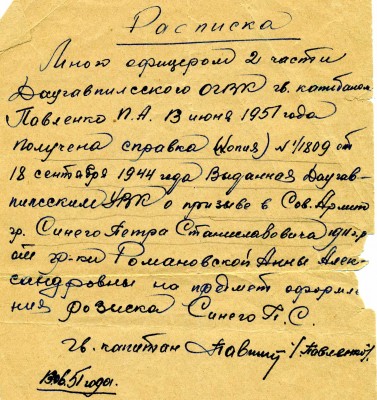 Расписка
Мною офицером 2 части
Даугавпилсского ОГВК гв. капитаном
Павленко П.А. 13 июня 1951 года
получена справка (копия) №1/1809 от
18 сентября 1944 года Выданная Даугав-
пилсским УВК о призыве в Сов. Армию
гр. Синего Петра Станиславовича 1911 г.р
от гр-ки Романовской Анны Алек-
сандровны на предмет оформле
ния розыска Синего П.С.
гв. капитан /Павленко/.
13.6.51 года.